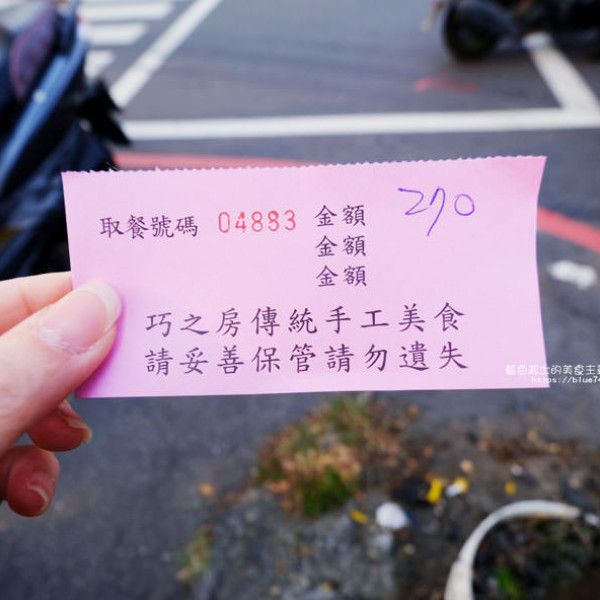 取餐號碼 04883 金額 270
金額
金額
巧之房傳統手工美食
請妥善保管請勿遺失
藍色起士的美食主
https://blue74